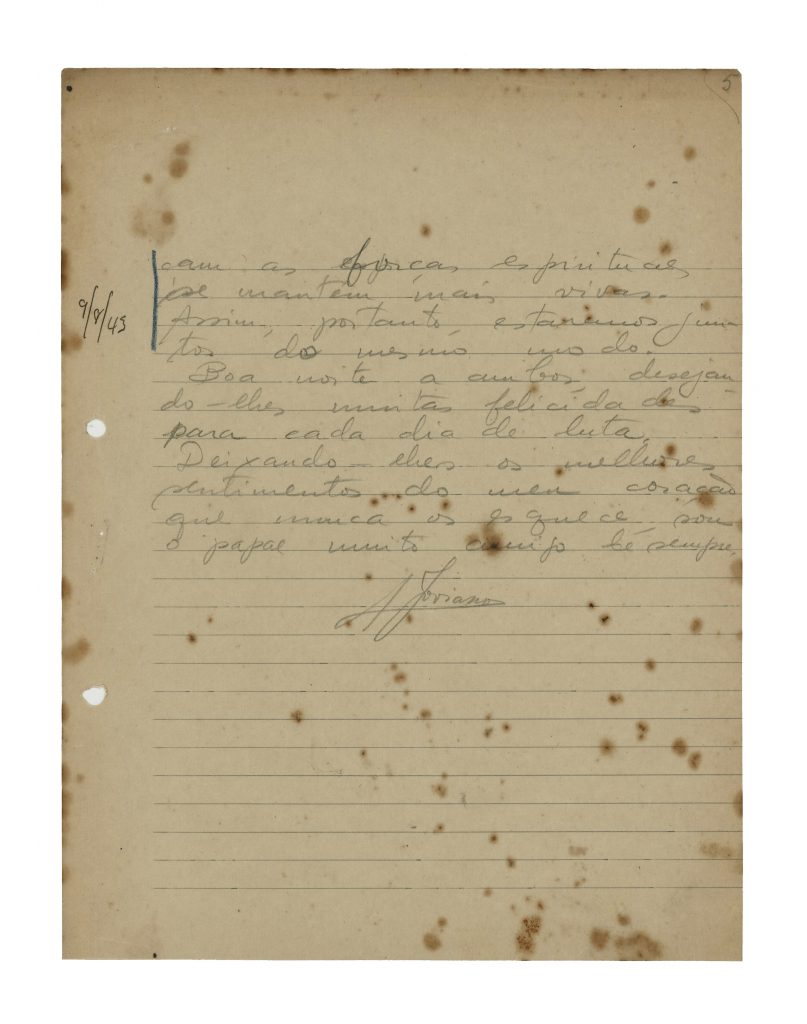 5
cam as forças espirituaes
se mantêm mais vivas.
9/8/45
Assim, portanto estaremos jun-
tos do mesmo modo.
Boa noite a ambos, desejan
do-lhes muitas felicidades
para cada dia de luta.
Deixando-lhes os melhores
sentimentos do meu coração
que nunca os esquece sou
o papae muito amigo de sempre,
A Joviano